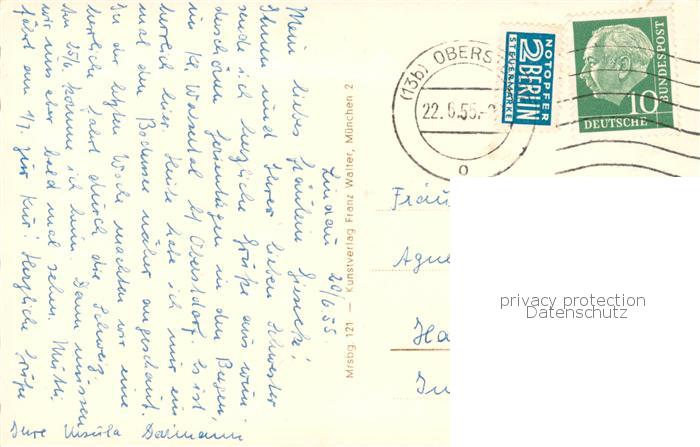 Lindau 20/6 55.
Mein liebes Fräulein Giesela!
Ihnen und Ihrer lieben Schwester
sende ich herzliche Grüße aus wun
derschönen Ferientagen in den Bergen,
im Kl. Walsertal bei Oberstdorf. Es ist
herrlich hier. Heute habe ich mir ein
mal den Bodensee näher angeschaut.
In der letzten Woche machten wir eine
herrliche Fahrt durch die Schweiz.
Am 25/6. komme ich heim. Dann müssen
wir uns aber bald mal sehen. Mutti
fährt am 1/7. zur Kur! Herzliche Grüße
Ihre Ursula
Mrsbg. 121 — Kunstverlag Franz Walter, München 2
(13b) OBERS
22.6.55.-
NOTOPFER
2 BERLIN
STEUERMARKE
DEUTSCHE
BUNDESPOST
10
Fräu
Agne
Ha
privacy protection
Datenschutz